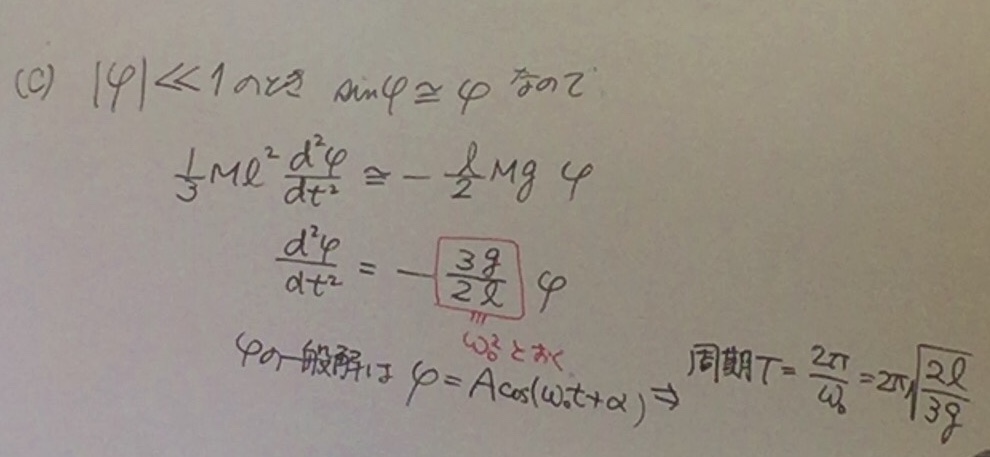 (C) |φ|≪1のとき sinφ≅φ なので
1/3 Mℓ² d²φ/dt² ≅ − ℓ/2 Mg φ
d²φ/dt² = − 3g/2ℓ φ
ω₀²とおく
φの一般解は φ=Acos(ω₀t+α) ⇒ 周期T= 2π/ω₀ =2π√(2ℓ/3g)